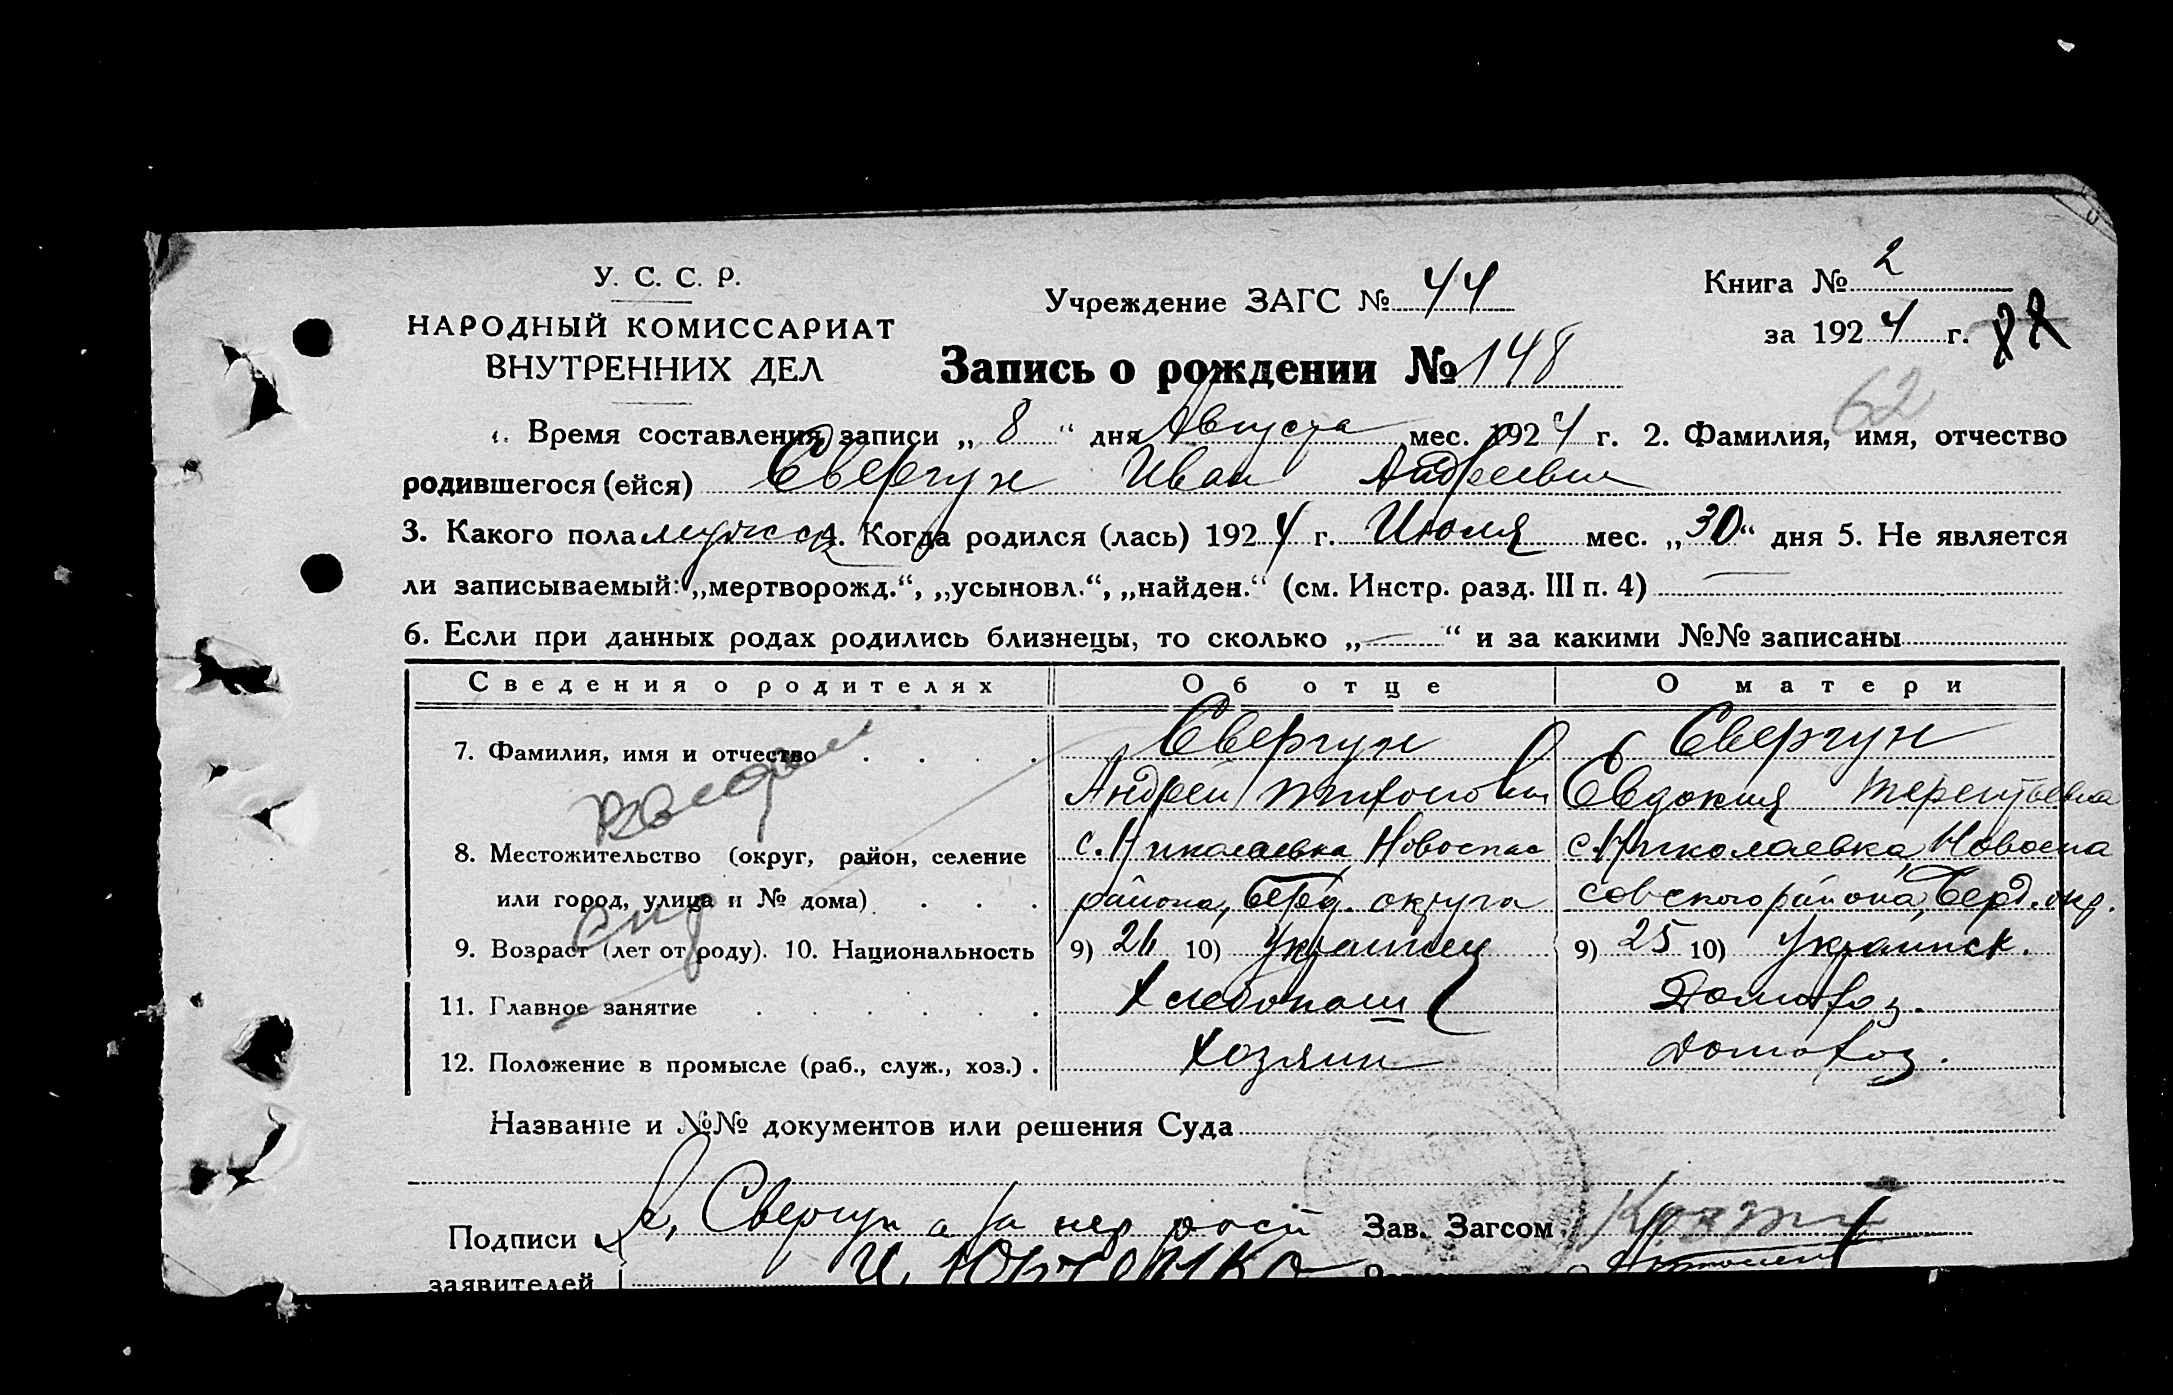 У. С. С. Р.
НАРОДНЫЙ КОМИССАРИАТ
ВНУТРЕННИХ ДЕЛ
Учреждение ЗАГС № 44
Книга № 2
за 1924 г.
Запись о рождении № 148
62
1. Время составления записи „ 8 “ дня Августа мес. 1924 г. 2. Фамилия, имя, отчество
родившегося (ейся) Свергун Иван Андреевич
3. Какого пола мужск 4. Когда родился (лась) 1924 г. Июля мес. „30“ дня 5. Не является
ли записываемый: „мертворожд.“, „усыновл.“, „найден.“ (см. Инстр. разд. III п. 4) —
6. Если при данных родах родились близнецы, то сколько „—“ и за какими №№ записаны
Сведения о родителях Об отце О матери
7. Фамилия, имя и отчество Свергун Свергун
Андрей Тихонович Евдокия Терентьевна
8. Местожительство (округ, район, селение с. Николаевка Новоспас с. Николаевка, Новоспа
или город, улица и № дома) района, Берд. округа совского района, Берд. окр.
9. Возраст (лет от роду). 10. Национальность 9) 26 10) Украинец 9) 25 10) Украинск.
11. Главное занятие Хлебопаш Домохоз.
12. Положение в промысле (раб., служ., хоз.) Хозяин Домохоз.
Название и №№ документов или решения Суда
Подписи Свергун а за нер Зав. Загсом
заявителей